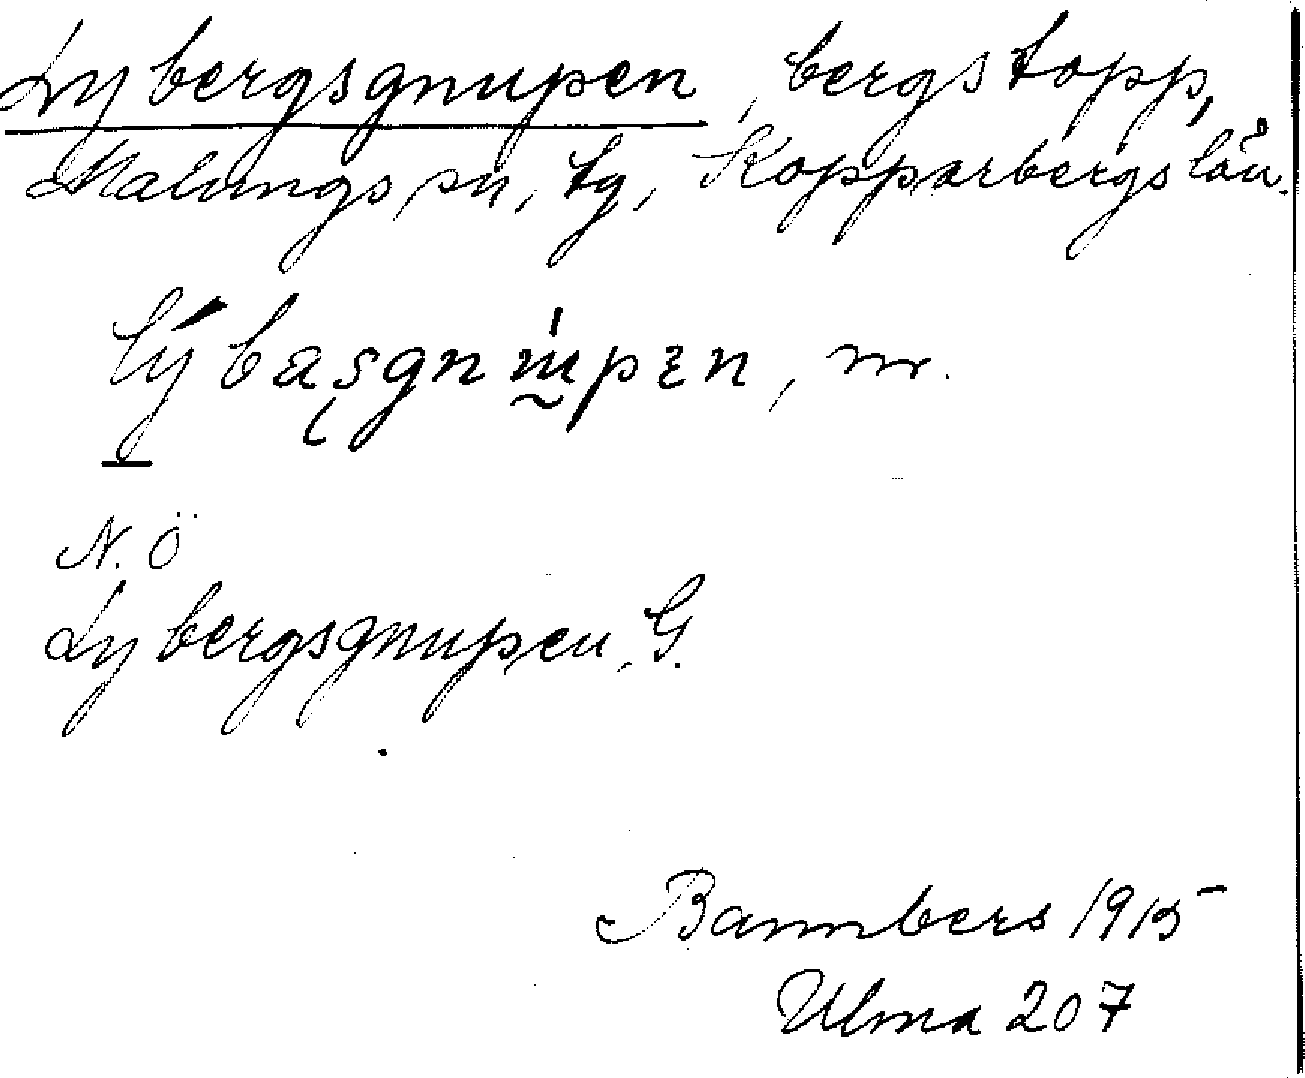 Lybergsgnupen, bergstopp,
Malungs sn, tg, Kopparbergs län.
N. Ö
Lybergsgnupen, G.
Bannbers 1915
Ulma 207